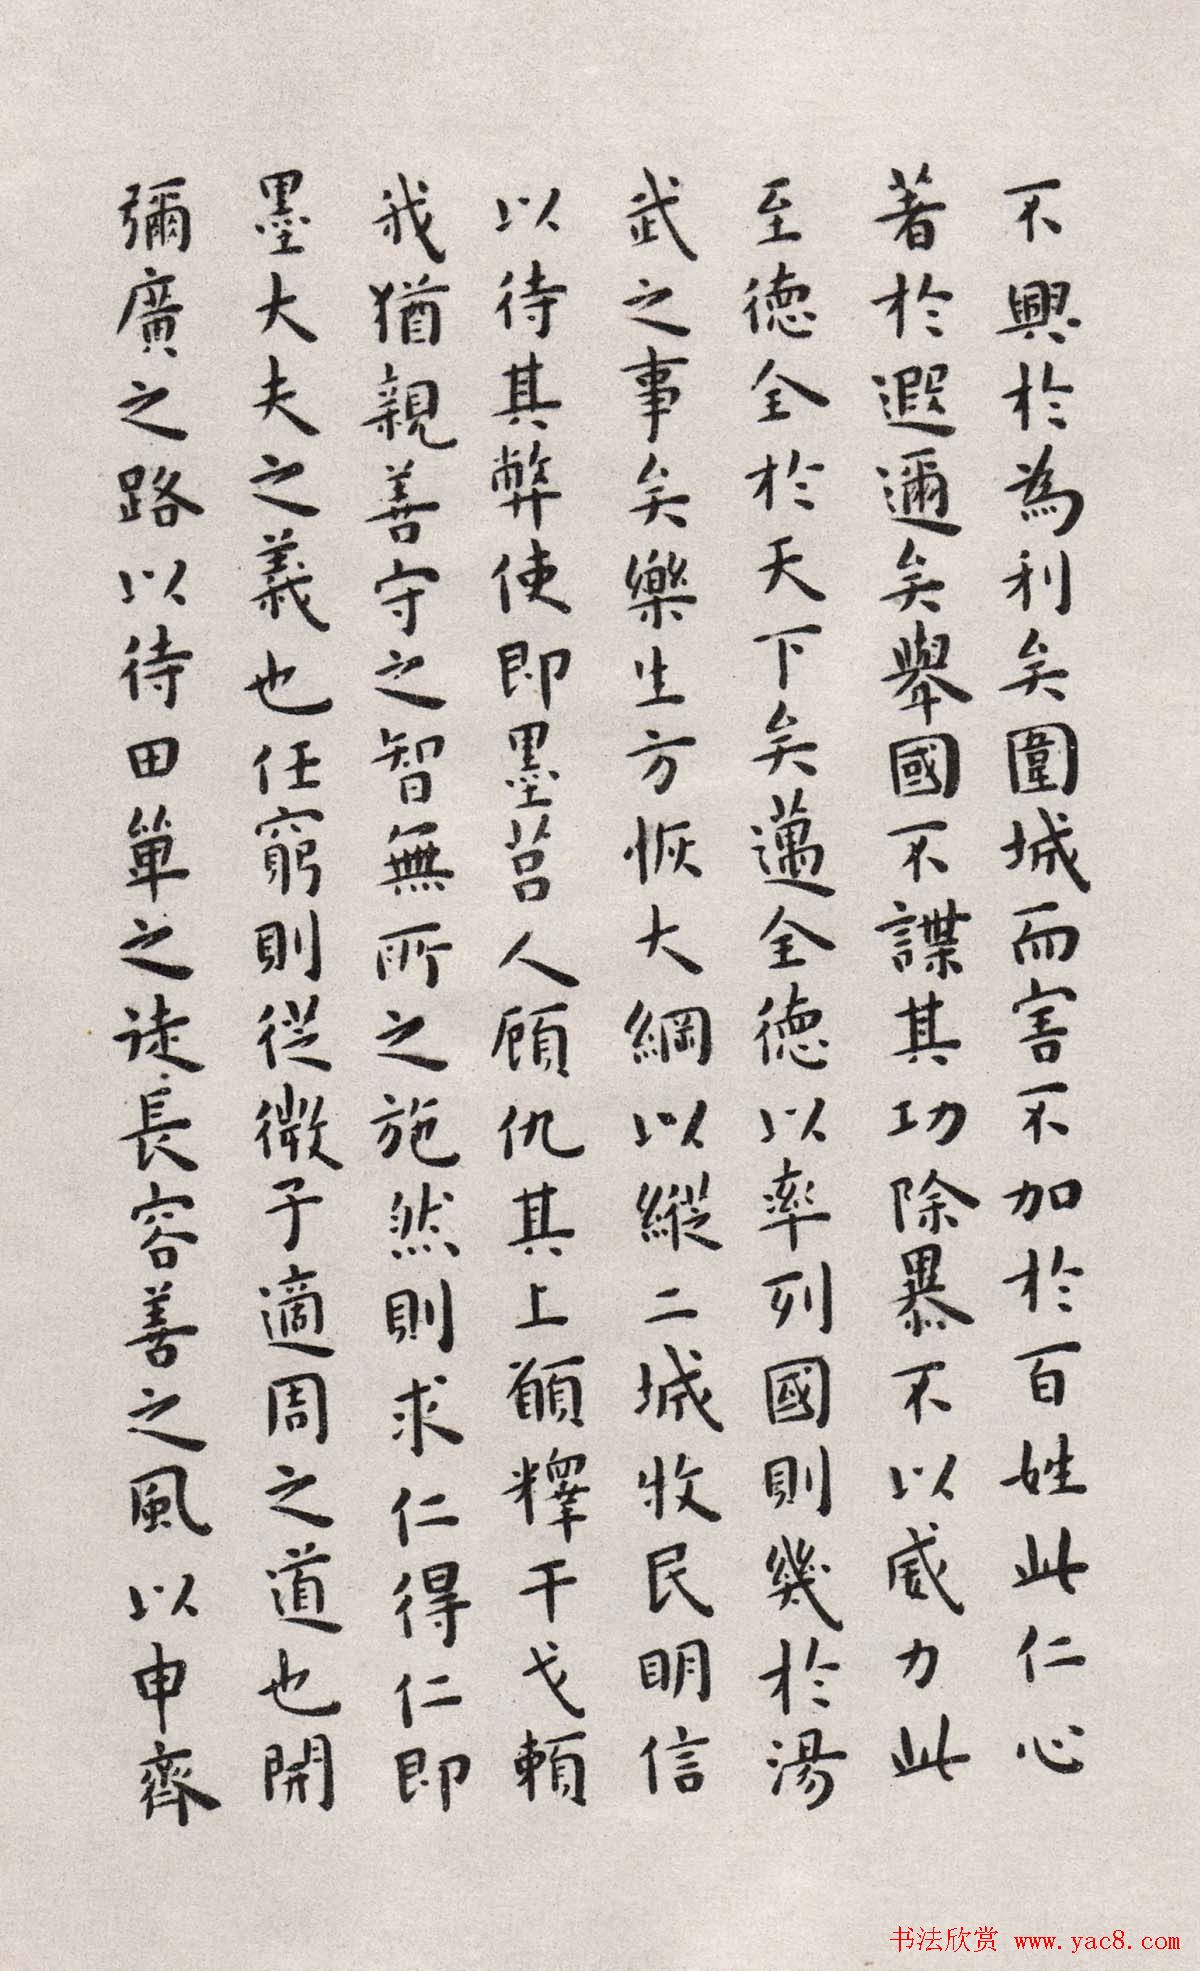 不興於為利矣圍城而害不加於百姓此仁心
著於遐邇矣舉國不謀其功除暴不以威力此
至德全於天下矣邁全德以率列國則幾於湯
武之事矣樂生方恢大綱以縱二城收民明信
以待其弊使即墨莒人顧仇其上願釋干戈賴
我猶親善守之智無所之施然則求仁得仁即
墨大夫之義也任窮則從微子適周之道也開
彌廣之路以待田單之徒長容善之風以申齊
书法欣赏 www.yac8.com